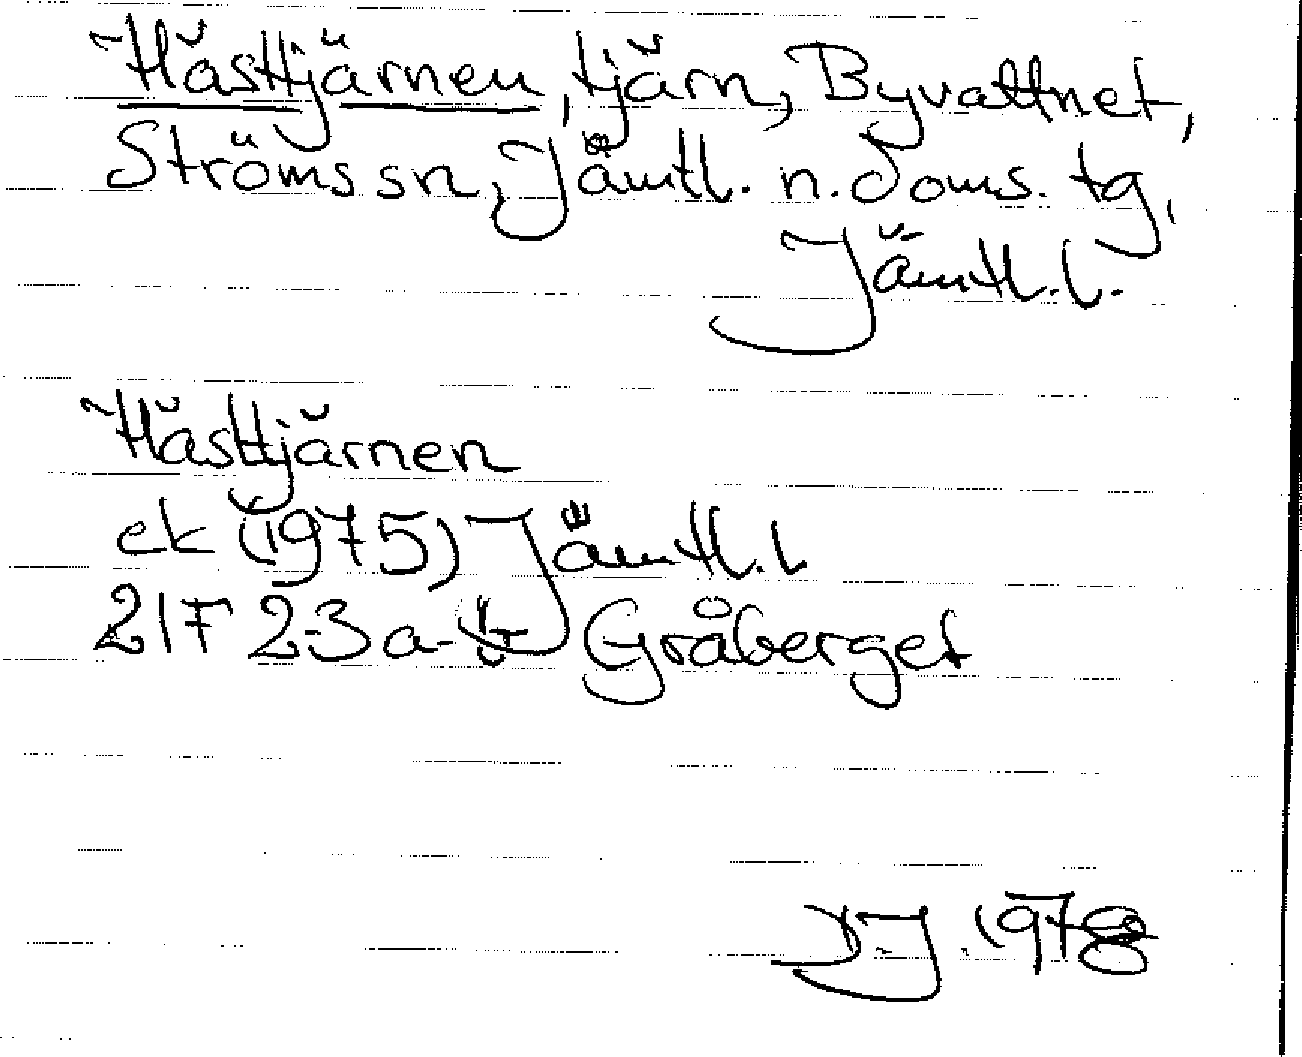 Hästtjärnen, tjärn, Byvattnet,
Ströms sn, Jämtl. n. doms. tg,
Jämtl. l.
Hästtjärnen
ek (1975) Jämtl. l
21F 2-3 a-b Gråberget
1978